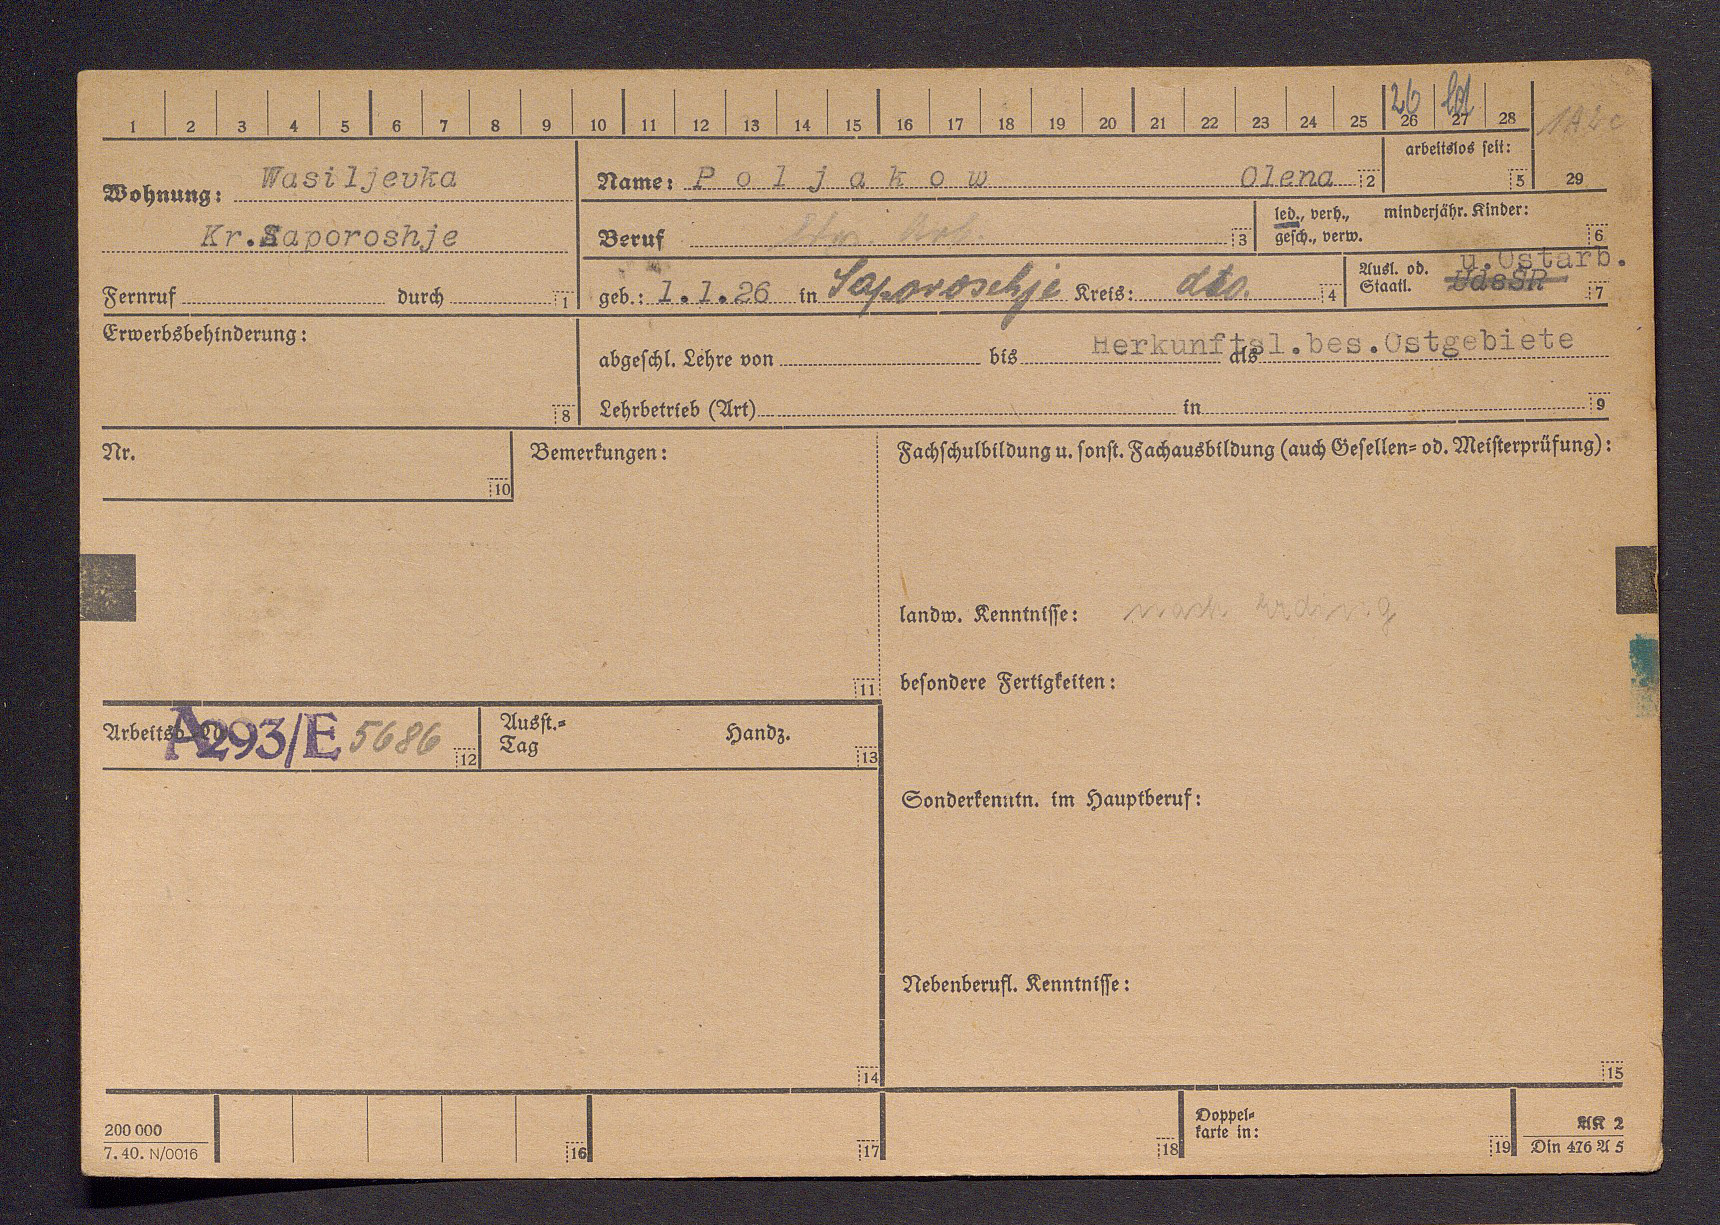 1 2 3 4 5 6 7 8 9 10 11 12 13 14 15 16 17 18 19 20 21 22 23 24 25 26 27 28
26
arbeitslos seit:
5 29
Wohnung: Wasiljevka
Kr.Saporoshje
Fernruf durch 1
Name: Poljakow Olena 2
Beruf 3
led., verh.,
gesch., verw.
minderjähr. Kinder:
6
geb.: 1.1.26 in Saporoschje Kreis: dto. 4
Ausl. od.
Staatl.
u.Ostarb.
UdSSR 7
Erwerbsbehinderung:
8
Herkunftsl.bes.Ostgebiete
abgeschl. Lehre von bis als
Lehrbetrieb (Art) in 9
Nr.
10
Bemerkungen:
11
Fachschulbildung u. sonst. Fachausbildung (auch Gesellen= od. Meisterprüfung):
landw. Kenntnisse: nach Erding
besondere Fertigkeiten:
Arbeitsb. A293/E 5686 12
Ausst.=
Tag
Handz.
13
Sonderkenntn. im Hauptberuf:
Nebenberufl. Kenntnisse:
14 15
200 000
7. 40. N/0016
16 17 18
Doppel=
karte in:
19
AK 2
Din 476 A 5